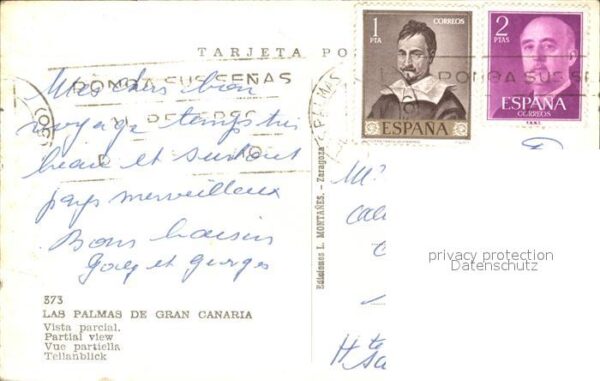 TARJETA PO
1
PTA
CORREOS
ESPAÑA
2
PTAS
ESPAÑA
CORREOS
PONGA SUS SEÑAS
PONGA SUS SE
PALMAS
bon
voyage temps très
beau et surtout
pays merveilleux
Bons baisers
et georges
Ediciones L. MONTAÑES. - Zaragoza
M
privacy protection
Datenschutz
Hte
373
LAS PALMAS DE GRAN CANARIA
Vista parcial.
Partial view
Vue partielle
Teilanblick